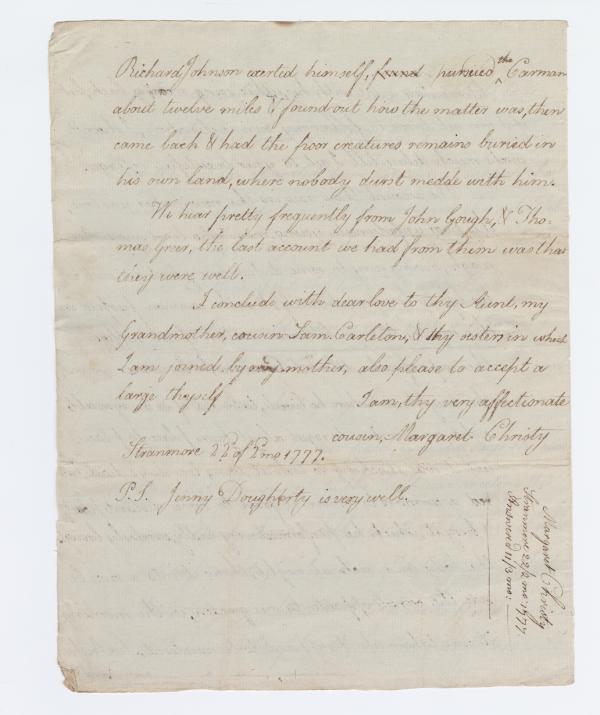 Richard Johnson exerted himself, found pursued the Carman
about twelve miles & found out how the matter was, then
came back & had the poor creatures remains buried in
his own land, where nobody durst medde with him.
We hear pretty frequently from John Gough, & Tho-
mas Greer, the last account we had from them was that
they were well.
I conclude with dear love to thy Aunt, my
Grandmother, cousin Sam. Carleton, & thy sisters in which
I am joined, by my mother, also please to accept a
large thyself
I am, thy very affectionate
cousin, Margaret Christy
Stranmore 22d. of 2mo 1777.
P.S. Jenny Dougherty is very well.
Margaret Christy
Stranmore 22/2 mo: 1777
Answered 11/3 mo: